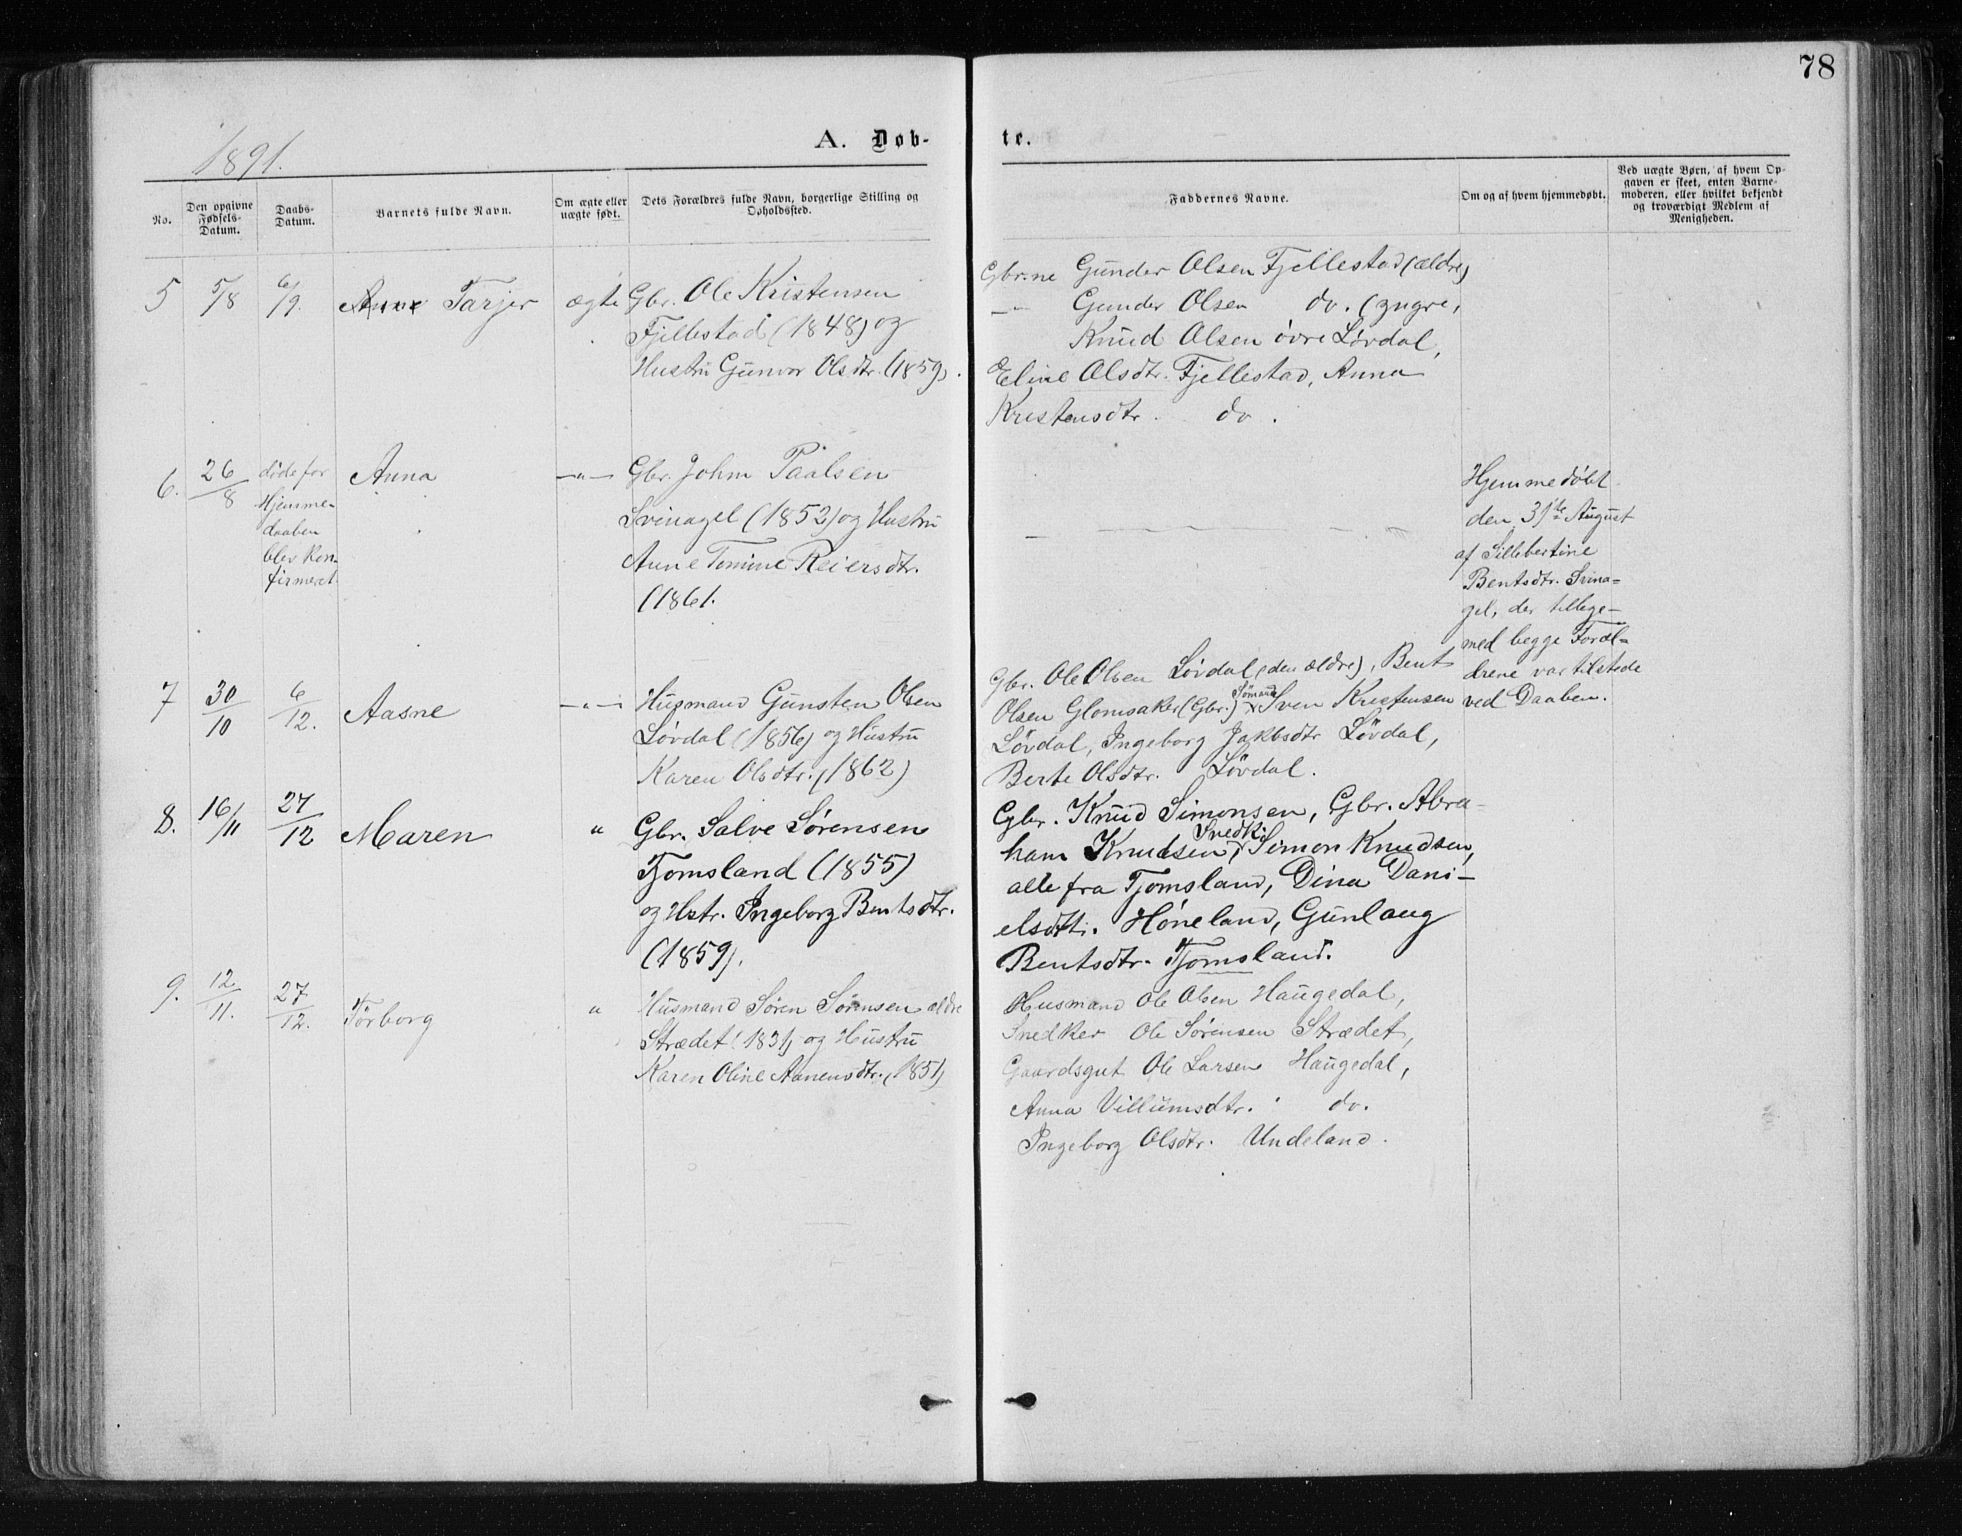 78
1891.
A. Døb-
te.
No.
Den opgivne Fødsels-Datum.
Daabs-Datum.
Barnets fulde Navn.
Om ægte eller uægte født.
Dets Forældres fulde Navn, borgerlige Stilling og Opholdssted.
Faddernes Navne.
Om og af hvem hjemmedøbt.
Ved uægte Børn, af hvem Op-
gaven er skeet, enten Barne-
moderen, eller hvilket bekjendt
og troværdigt Medlem af
Menigheden.
5 5/8 6/9. Tarjer ægte Gbr. Ole Kristensen
Fjellestad (1848) og
Hustru Gunvor Olsdtr. (1859).
Gbr:ne Gunder Olsen Fjellestad (ældre)
—"— Gunder Olsen do. (yngre,
Knud Olsen övre Lövdal,
Eline Olsdtr. Fjellestad, Anna
Kristensdtr. do.
6. 26/8 døde før
Hjemme-
daaben
blev kon-
firmeret
Anna —"— Gbr. John Paalsen
Svinagel (1852) og Hustru
Anne Tomine Reiersdtr.
(1861.
Hjemmedøbt
den 31te August
af Sillebertine
Bentsdtr. Svina-
gel, der tillige-
med begge Foræl-
drene var tilstede
ved Daaben.
7 30/10 6/12. Aasne —"— Husmand Gunsten Olsen
Løvdal (1856) og Hustru
Karen Olsdtr. (1862)
Gbr. Ole Olsen Løvdal (den ældre), Bent
Olsen Glomsaker (Gbr.) Sømand Sven Kristensen
Lövdal, Ingeborg Jakbsdtr Lövdal,
Berte Olsdtr. Lövdal.
8. 16/11 27/12 Maren " Gbr. Salve Sørensen
Tjomsland (1855)
og Hstr. Ingeborg Bentsdtr.
(1859).
Gbr. Knud Simonsen, Gbr. Abra-
ham Knudsen, Snedk. Simon Knudsen,
alle fra Tjomsland, Dina Dani-
elsdtr. Høneland, Gunlaug
Bentsdtr. Tjomsland.
9. 12/11. 27/12. Törborg " Husmand Søren Sørensen ældre
Strædet (1831) og Hustru
Karen Oline Aanensdtr. (1851)
Husmand Ole Olsen Haugedal,
Snedker Ole Sørensen Strædet,
Gaardsgut Ole Larsen Haugedal,
Anna Villumsdtr. do.
Ingeborg Olsdtr. Undeland.